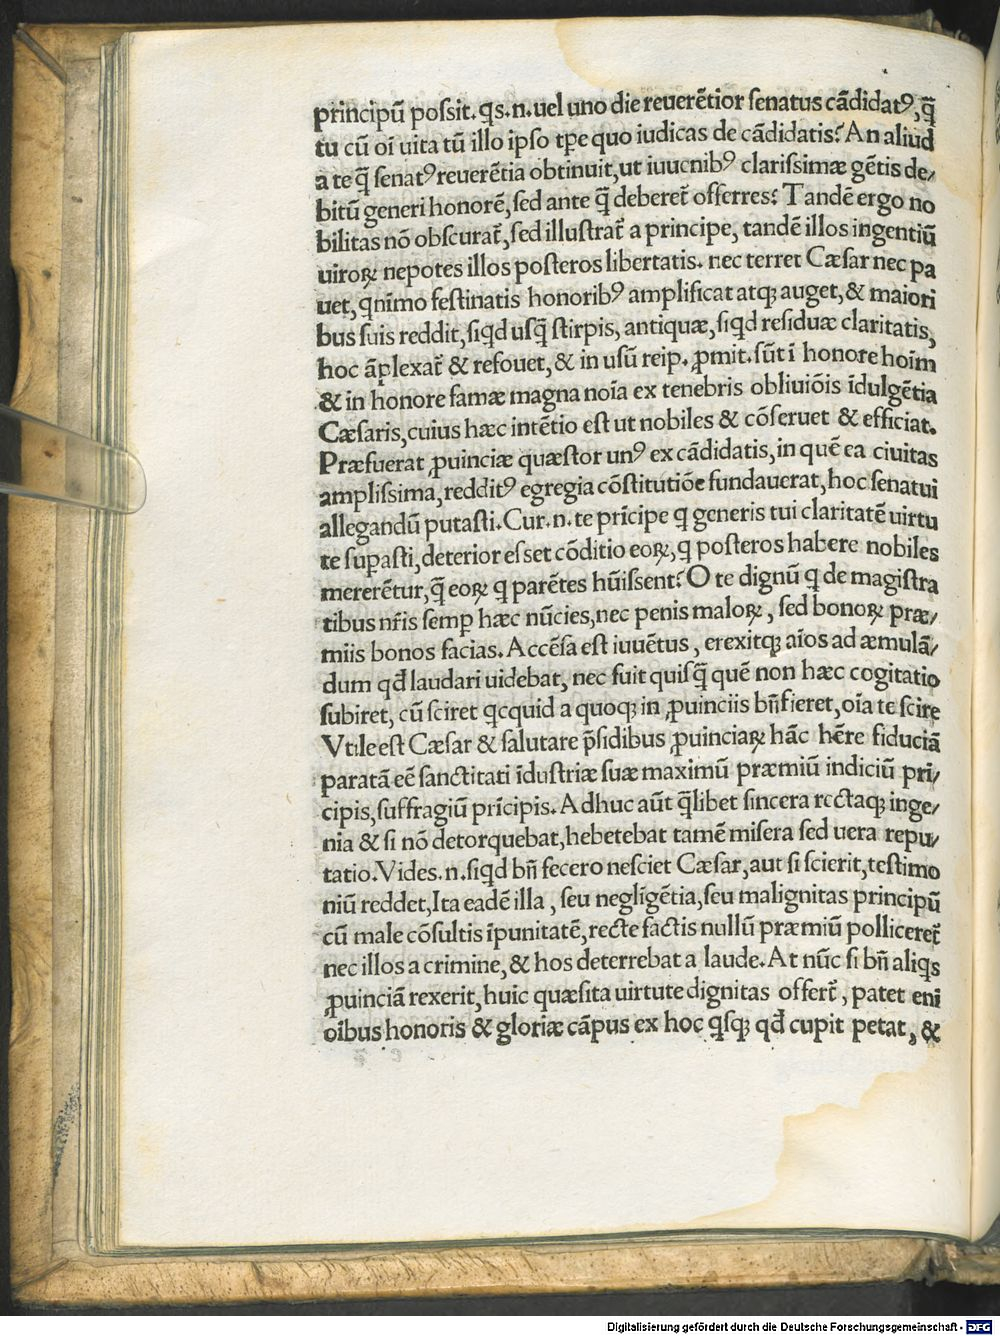 principũ possit. qs. n. uel uno die reuerẽtior senatus cãdidatꝰ, q̃
tu cũ oĩ uita tũ illo ipso tꝑe quo iudicas de cãdidatis? An aliud
a te q̃ senatꝰ reuerẽtia obtinuit, ut iuuenibꝰ clarissimæ gẽtis de/
bitũ generi honorẽ, sed ante q̃ deberet̃ offerres? Tandẽ ergo no
bilitas nõ obscurat̃, sed illustrat̃ a principe, tandẽ illos ingentiũ
uiroꝝ nepotes illos posteros libertatis. nec terret Cæsar nec pa
uet, qnĩmo festinatis honoribꝰ amplificat atqꝫ auget, & maiori
bus suis reddit, siqd usq̃ stirpis, antiquæ, siqd residuæ claritatis,
hoc ãplexat̃ & refouet, & in usũ reip. ꝓmit. sũt ĩ honore hoĩm
& in honore famæ magna noĩa ex tenebris obliuiõis ĩdulgẽtia
Cæsaris, cuius hæc intẽtio est ut nobiles & cõseruet & efficiat.
Præfuerat ꝓuinciæ quæstor unꝰ ex cãdidatis, in quẽ ea ciuitas
amplissima, redditꝰ egregia cõstitutiõe fundauerat, hoc senatui
allegandũ putasti. Cur. n. te prĩcipe q generis tui claritatẽ uirtu
te suꝑasti, deterior esset cõditio eoꝝ, q posteros habere nobiles
mererẽtur, q̃ eoꝝ q parẽtes hũissent? O te dignũ q de magistra
tibus nr̃is semꝑ hæc nũcies, nec penis maloꝝ, sed bonoꝝ præ/
miis bonos facias. Accẽsa est iuuẽtus, erexitqꝫ aĩos ad æmulã/
dum qđ laudari uidebat, nec fuit quisq̃ quẽ non hæc cogitatio
subiret, cũ sciret qcquid a quoqꝫ in ꝓuinciis bñfieret, oĩa te scire
Vtile est Cæsar & salutare p̃sidibus ꝓuinciaꝝ hãc hẽre fiduciã
paratã eẽ sanctitati ĩdustriæ suæ maximũ præmiũ indiciũ pri/
cipis, suffragiũ prĩcipis. Adhuc aũt q̃libet sincera rectaqꝫ inge/
nia & si nõ detorquebat, hebetebat tamẽ misera sed uera repu/
tatio. Vides. n. siqd bñ fecero nesciet Cæsar, aut si scierit, testimo
niũ reddet, Ita eadẽ illa, seu negligẽtia, seu malignitas principũ
cũ male cõsultis ĩpunitatẽ, recte factis nullũ præmiũ polliceret̃
nec illos a crimine, & hos deterrebat a laude. At nũc si bñ aliqs
ꝓuinciã rexerit, huic quæsita uirtute dignitas offert̃, patet eni
oĩbus honoris & gloriæ cãpus ex hoc qsqꝫ qđ cupit petat, &
Digitalisierung gefördert durch die Deutsche Forschungsgemeinschaft - DFG